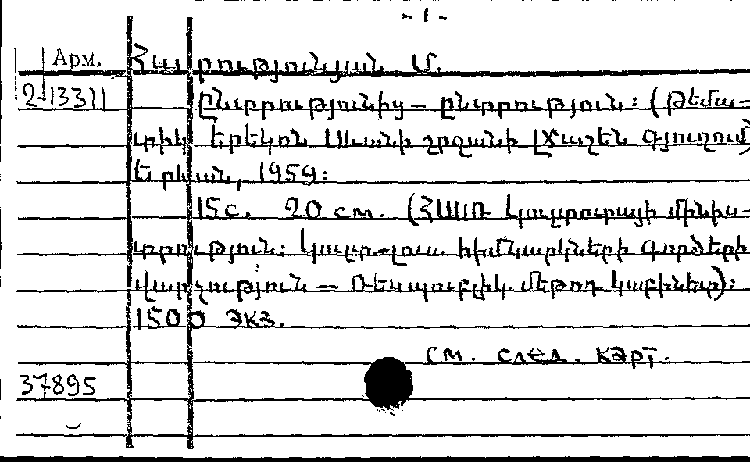 - 1 -
Арм. Հարությունյան Մ.
2-13311 Ընտրությունից — ընտրություն: (Թեմա-
տիկ երեկո Սևանի շրջանի գյուղում)
Երևան, 1959:
15 с. 20 см. (ՀՍՍՌ Կուլտուրայի մինիս-
տրություն: Կուլտ-լուս. հիմնարկների գործերի
վարչություն — Ռեսպուբլիկ. մեթոդ կաբինետ):
1500 экз.
см. след. карт.
37895